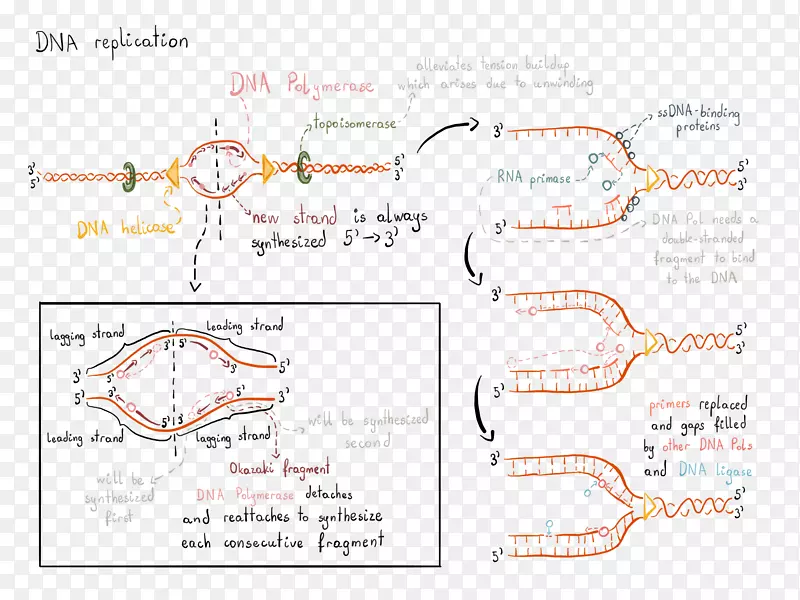 DNA replication
DNA Polymerase
alleviates tension buildup
which arises due to unwinding
topoisomerase
3'
5'
5'
3'
DNA helicase
new strand is always
synthesized 5' → 3'
3'
ssDNA-binding
proteins
RNA primase
5'
3'
5'
DNA Pol needs a
double-stranded
fragment to bind
to the DNA
3'
5'
3'
5'
lagging strand
leading strand
3'
5'
3'
5'
5'
5'
3'
5'
3'
3'
leading strand
lagging strand
will be synthesized
second
will be
synthesized
first
Okazaki fragment
DNA Polymerase detaches
and reattaches to synthesize
each consecutive fragment
primers replaced
and gaps filled
by other DNA Pols
and DNA ligase
3'
5'
3'
5'